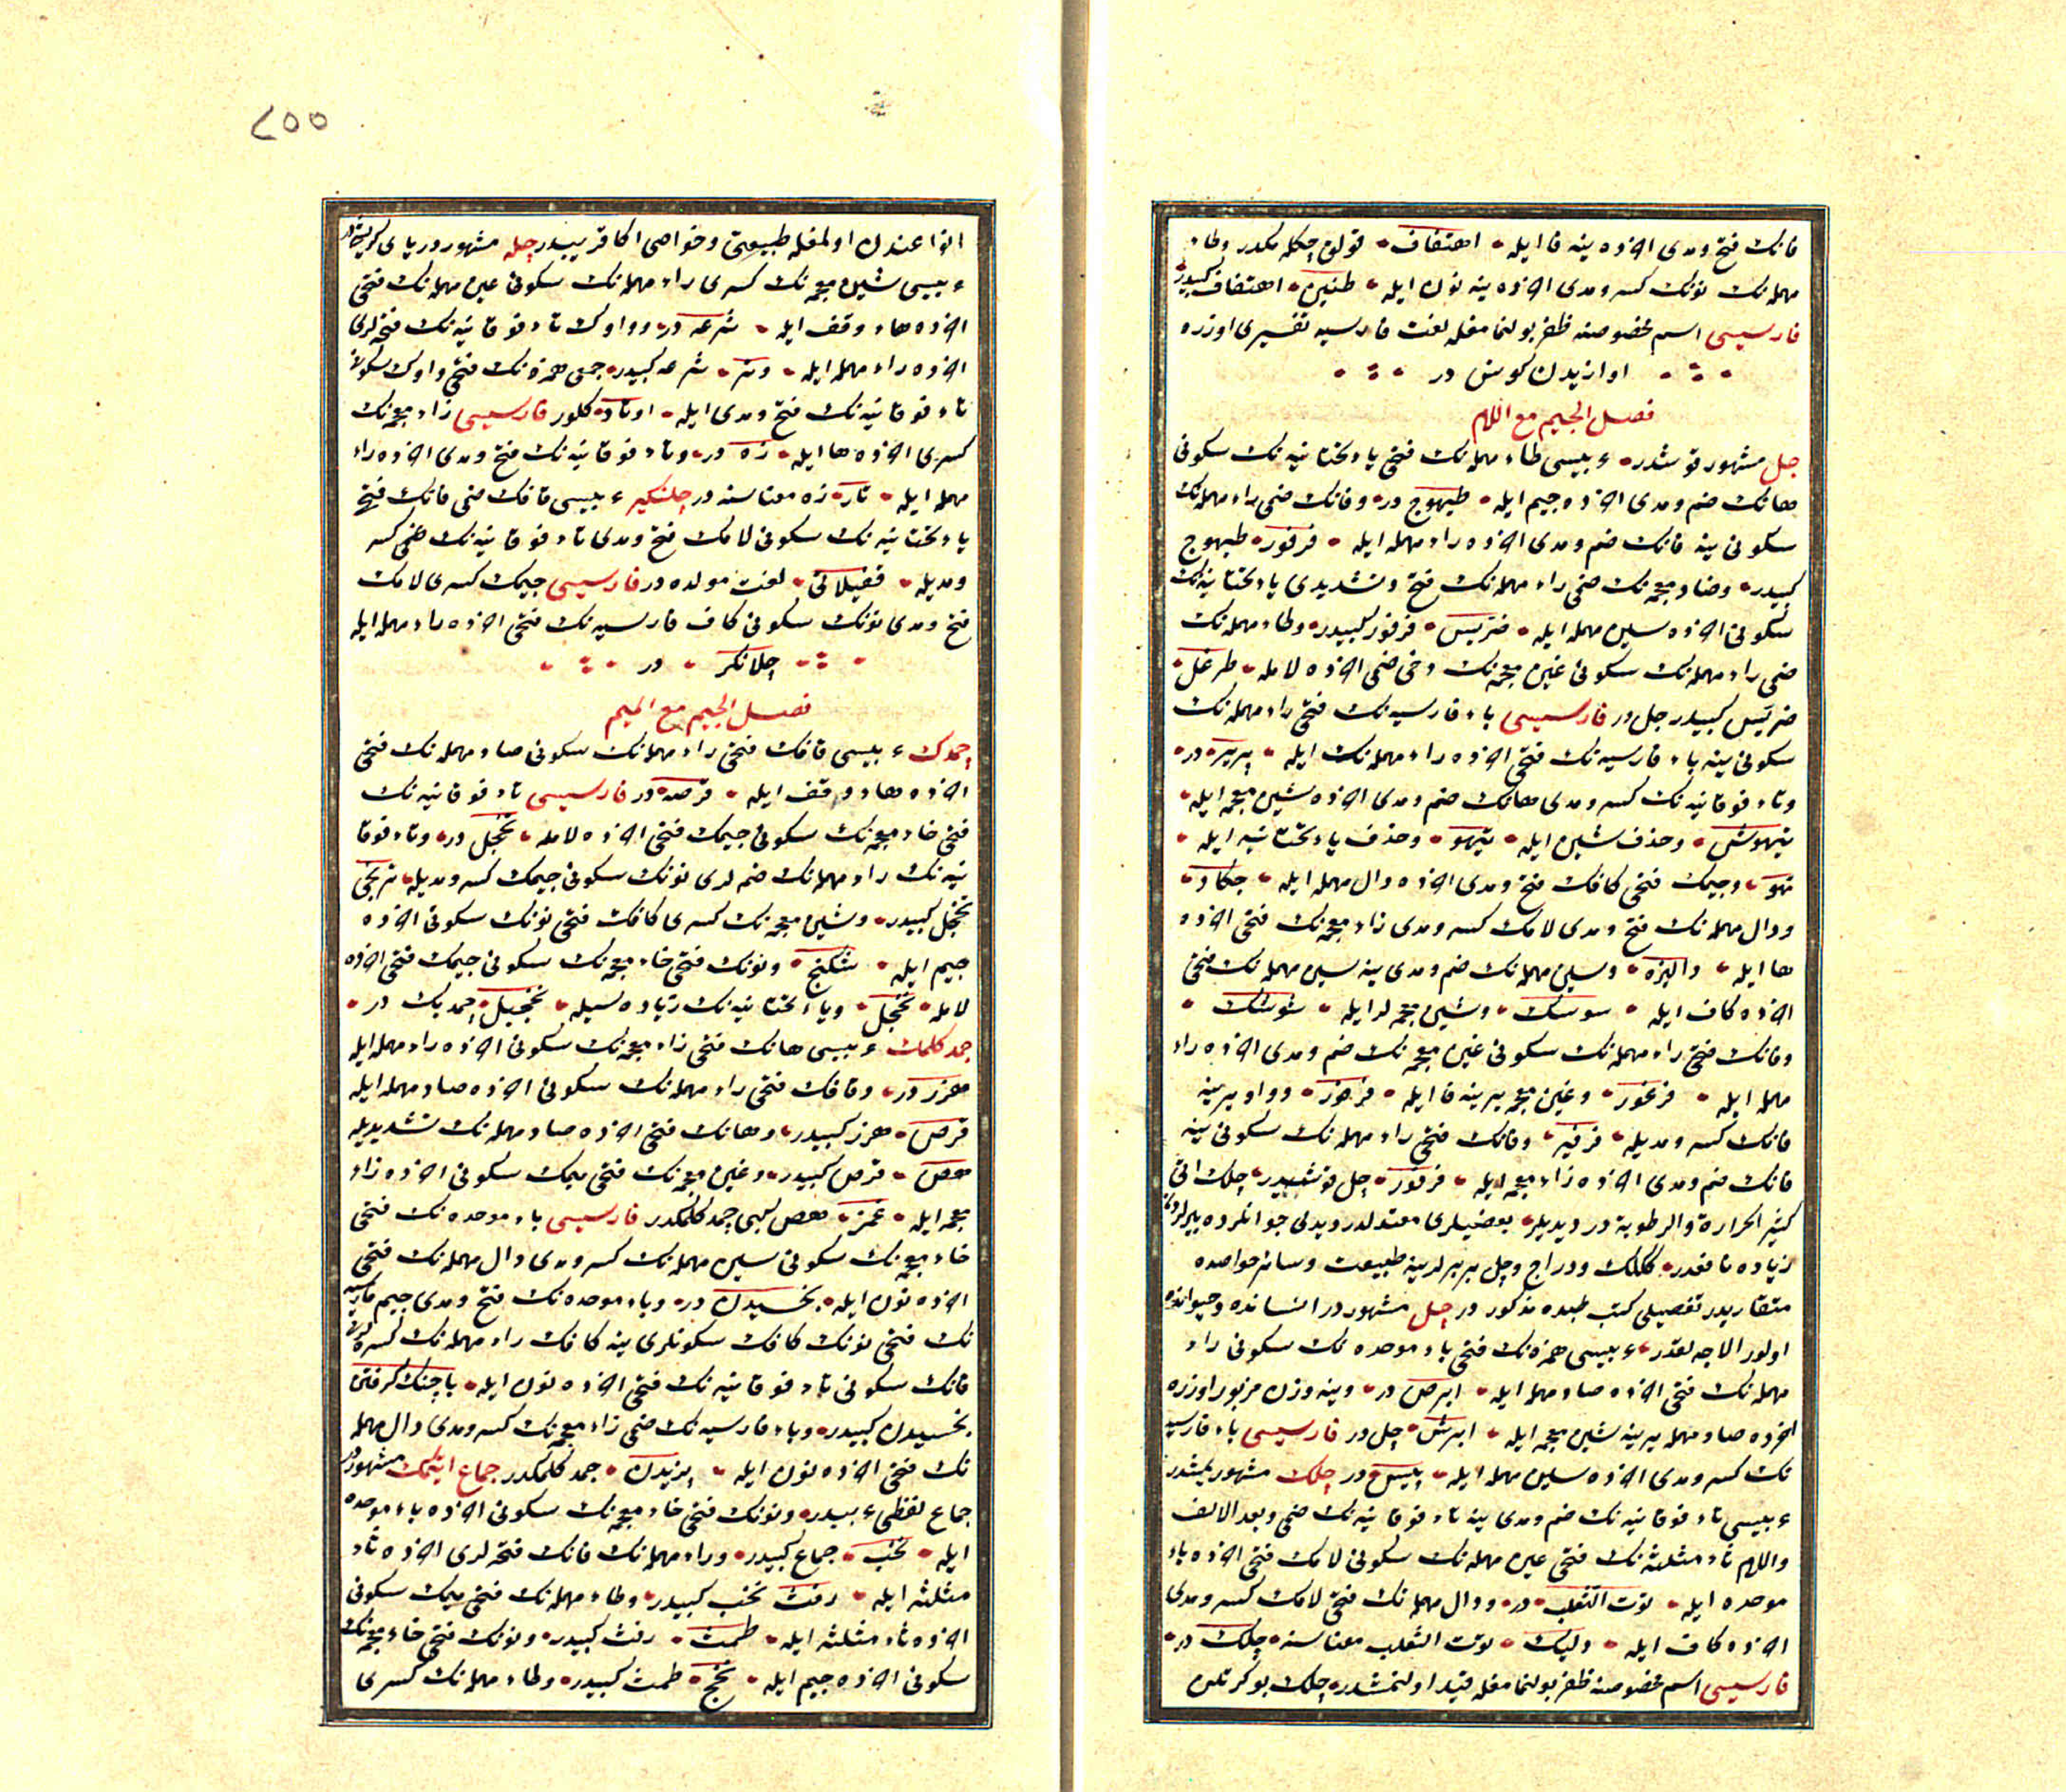 فانك فتح ومدى اخرده ينه فا ايله احتفاف قولوق چكله مكدر وطاء
مهمله نك نونك كسر ومدى اخرده ينه نون ايله طنين احتفاف كبيدر
فارسيسى اسم مخصوصنه ظفر بولنمامغله لغت فارسيه تفسيرى اوزره
اوازيدن كوش در
فصل الجيم مع اللام
چل مشهور قوشدر عربيسى طاء مهمله نك فتحى ياء تحتانيه نك سكونى
هانك ضم ومدى اخرده جيم ايله طيهوج در وفانك ضمى راء مهمله نك
سكونى ينه فانك ضم ومدى اخرده راء مهمله ايله فرفور طيهوج
كبيدر وضاد معجمه نك ضمى راء مهمله نك فتح وتشديدى ياء تحتانيه نك
سكونى اخرده سين مهمله ايله ضريس فرفور كبيدر وطاء مهمله نك
ضمى راء مهمله نك سكونى غين معجمه نك دخى ضمى اخرده لامله طرغل
ضريس كبيدر چل در فارسيسى باء فارسيه نك فتحى راء مهمله نك
سكونى ينه باء فارسيه نك فتحى اخرده راء مهمله نك ايله پرپره در
وتاء فوقانيه نك كسر ومدى هانك ضم ومدى اخرده شين معجمه ايله
تيهوش وحذف شين ايله تيهو وحذف ياء تحتانيه ايله
تهو وجيمك فتحى كافك فتح ومدى اخرده دال مهمله ايله جكاد
ودال مهمله نك فتح ومدى لامك كسر ومدى زاء معجمه نك فتحى اخرده
ها ايله داليزه وسين مهمله نك ضم ومدى ينه سين مهمله نك فتحى
اخرده كاف ايله سوسك وشين معجمه لر ايله شوشك
وفانك فتحى راء مهمله نك سكونى غين معجمه نك ضم ومدى اخرده راء
مهمله ايله فرغور وغين معجمه يرينه فا ايله فرفور وواو يرينه
فانك كسر ومديله فرفير وفانك فتحى راء مهمله نك سكونى ينه
فانك ضم ومدى اخرده زاء معجمه ايله فرفوز چل قوشيدر چلك اتى
كثير الحرارة والرطوبة در ديديلر بعضيلرى معتدلدر ديدى جوانلرده پيرلردن
زياده نافعدر ككلك ودراج وچل بربرلرينه طبيعت وسائر خواصده
متقاربدر تفصيلى كتب طبده مذكور در چل مشهور در انسانده وحيوانده
اولور الاجه لقدر عربيسى همزه نك فتحى باء موحده نك سكونى راء
مهمله نك فتحى اخرده صاد مهمله ايله ابرص در وينه وزن مزبور اوزره
اخرده صاد مهمله يرينه شين معجمه ايله ابرش چل در فارسيسى باء فارسيه
نك كسر ومدى اخرده سين مهمله ايله پيس در چلك مشهور يمشدر
عربيسى تاء فوقانيه نك ضم ومدى ينه تاء فوقانيه نك ضمى وبعد الالف
واللام ثاء مثلثه نك فتحى عين مهمله نك سكونى لامك فتحى اخرده باء
موحده ايله توت الثعلب در ودال مهمله نك فتحى لامك كسر ومدى
اخرده كاف ايله دليك توت الثعلب معناسنه چلك در
فارسيسى اسم مخصوصنه ظفر بولنمامغله قيد اولنمشدر چلك بوكرتلن
٢٥٥
انواعندن اولمغله طبيعتى وخواصى اكا قريبدر چله مشهور در ياى كريشيدر
عربيسى شين معجمه نك كسرى راء مهمله نك سكونى عين مهمله نك فتحى
اخرده هاء وقف ايله شرعه در وواوك تاء فوقانيه نك فتحه لرى
اخرده راء مهمله ايله وتر شرعه كبيدر جمعى همزه نك فتحى واوك سكونى
تاء فوقانيه نك فتح ومدى ايله اوتار كلور فارسيسى زاء معجمه نك
كسرى اخرده ها ايله زه در وتاء فوقانيه نك فتح ومدى اخرده راء
مهمله ايله تار زه معناسنه در چلنكير عربيسى قافك ضمى فانك فتح
ياء تحتانيه نك سكونى لامك فتح ومدى تاء فوقانيه نك ضمى كسر
ومديله قفيلاتى لغت مولده در فارسيسى جيمك كسرى لامك
فتح ومدى نونك سكونى كاف فارسيه نك فتحى اخرده راء مهمله ايله
چلانكر در
فصل الجيم مع الميم
چمدك عربيسى قافك فتحى راء مهمله نك سكونى صاد مهمله نك فتحى
اخرده هاء وقف ايله قرصه در فارسيسى تاء فوقانيه نك
فتحى خاء معجمه نك سكونى جيمك فتحى اخرده لامله تخجل در وتاء فوقا
نيه نك راء مهمله نك ضمه لرى نونك سكونى جيمك كسر ومديله ترنجى
تخجل كبيدر وشين معجمه نك كسرى كافك فتحى نونك سكونى اخرده
جيم ايله شكنج ونونك فتحى خاء معجمه نك سكونى جيمك فتحى اخرده
لامله نخجل وياء تحتانيه نك زياده سيله نخجيل چمديك در
چمدكلمك عربيسى هانك فتحى زاء معجمه نك سكونى اخرده راء مهمله ايله
هزر در وقافك فتحى راء مهمله نك سكونى اخرده صاد مهمله ايله
قرص هزر كبيدر وهانك فتحى اخرده صاد مهمله نك تشديديله
هص قرص كبيدر وغين معجمه نك فتحى ميمك سكونى اخرده زاء
معجمه ايله غمز هص كبى چمدكلمكدر فارسيسى باء موحده نك فتحى
خاء معجمه نك سكونى سين مهمله نك كسر ومدى دال مهمله نك فتحى
اخرده نون ايله بخسيدن در وباء موحده نك فتح ومدى جيم فارسيه
نك فتحى نونك كافك سكونلرى ينه كافك راء مهمله نك كسره لرى
فانك سكونى تاء فوقانيه نك فتحى اخرده نون ايله باچنك كرفتن
بخسيدن كبيدر وباء فارسيه نك ضمى زاء معجمه نك كسر ومدى دال مهمله
نك فتحى اخرده نون ايله پزيدن چمدكلمكدر جماع ايتمك مشهور در
جماع لفظى عربيدر ونونك فتحى خاء معجمه نك سكونى اخرده باء موحده
ايله نخب جماع كبيدر وراء مهمله نك فانك فتحه لرى اخرده ثاء
مثلثه ايله رفث نخب كبيدر وطاء مهمله نك فتحى ميمك سكونى
اخرده ثاء مثلثه ايله طمث رفث كبيدر ونونك فتحى خاء معجمه نك
سكونى اخرده جيم ايله نخج طمث كبيدر وطاء مهمله نك كسرى